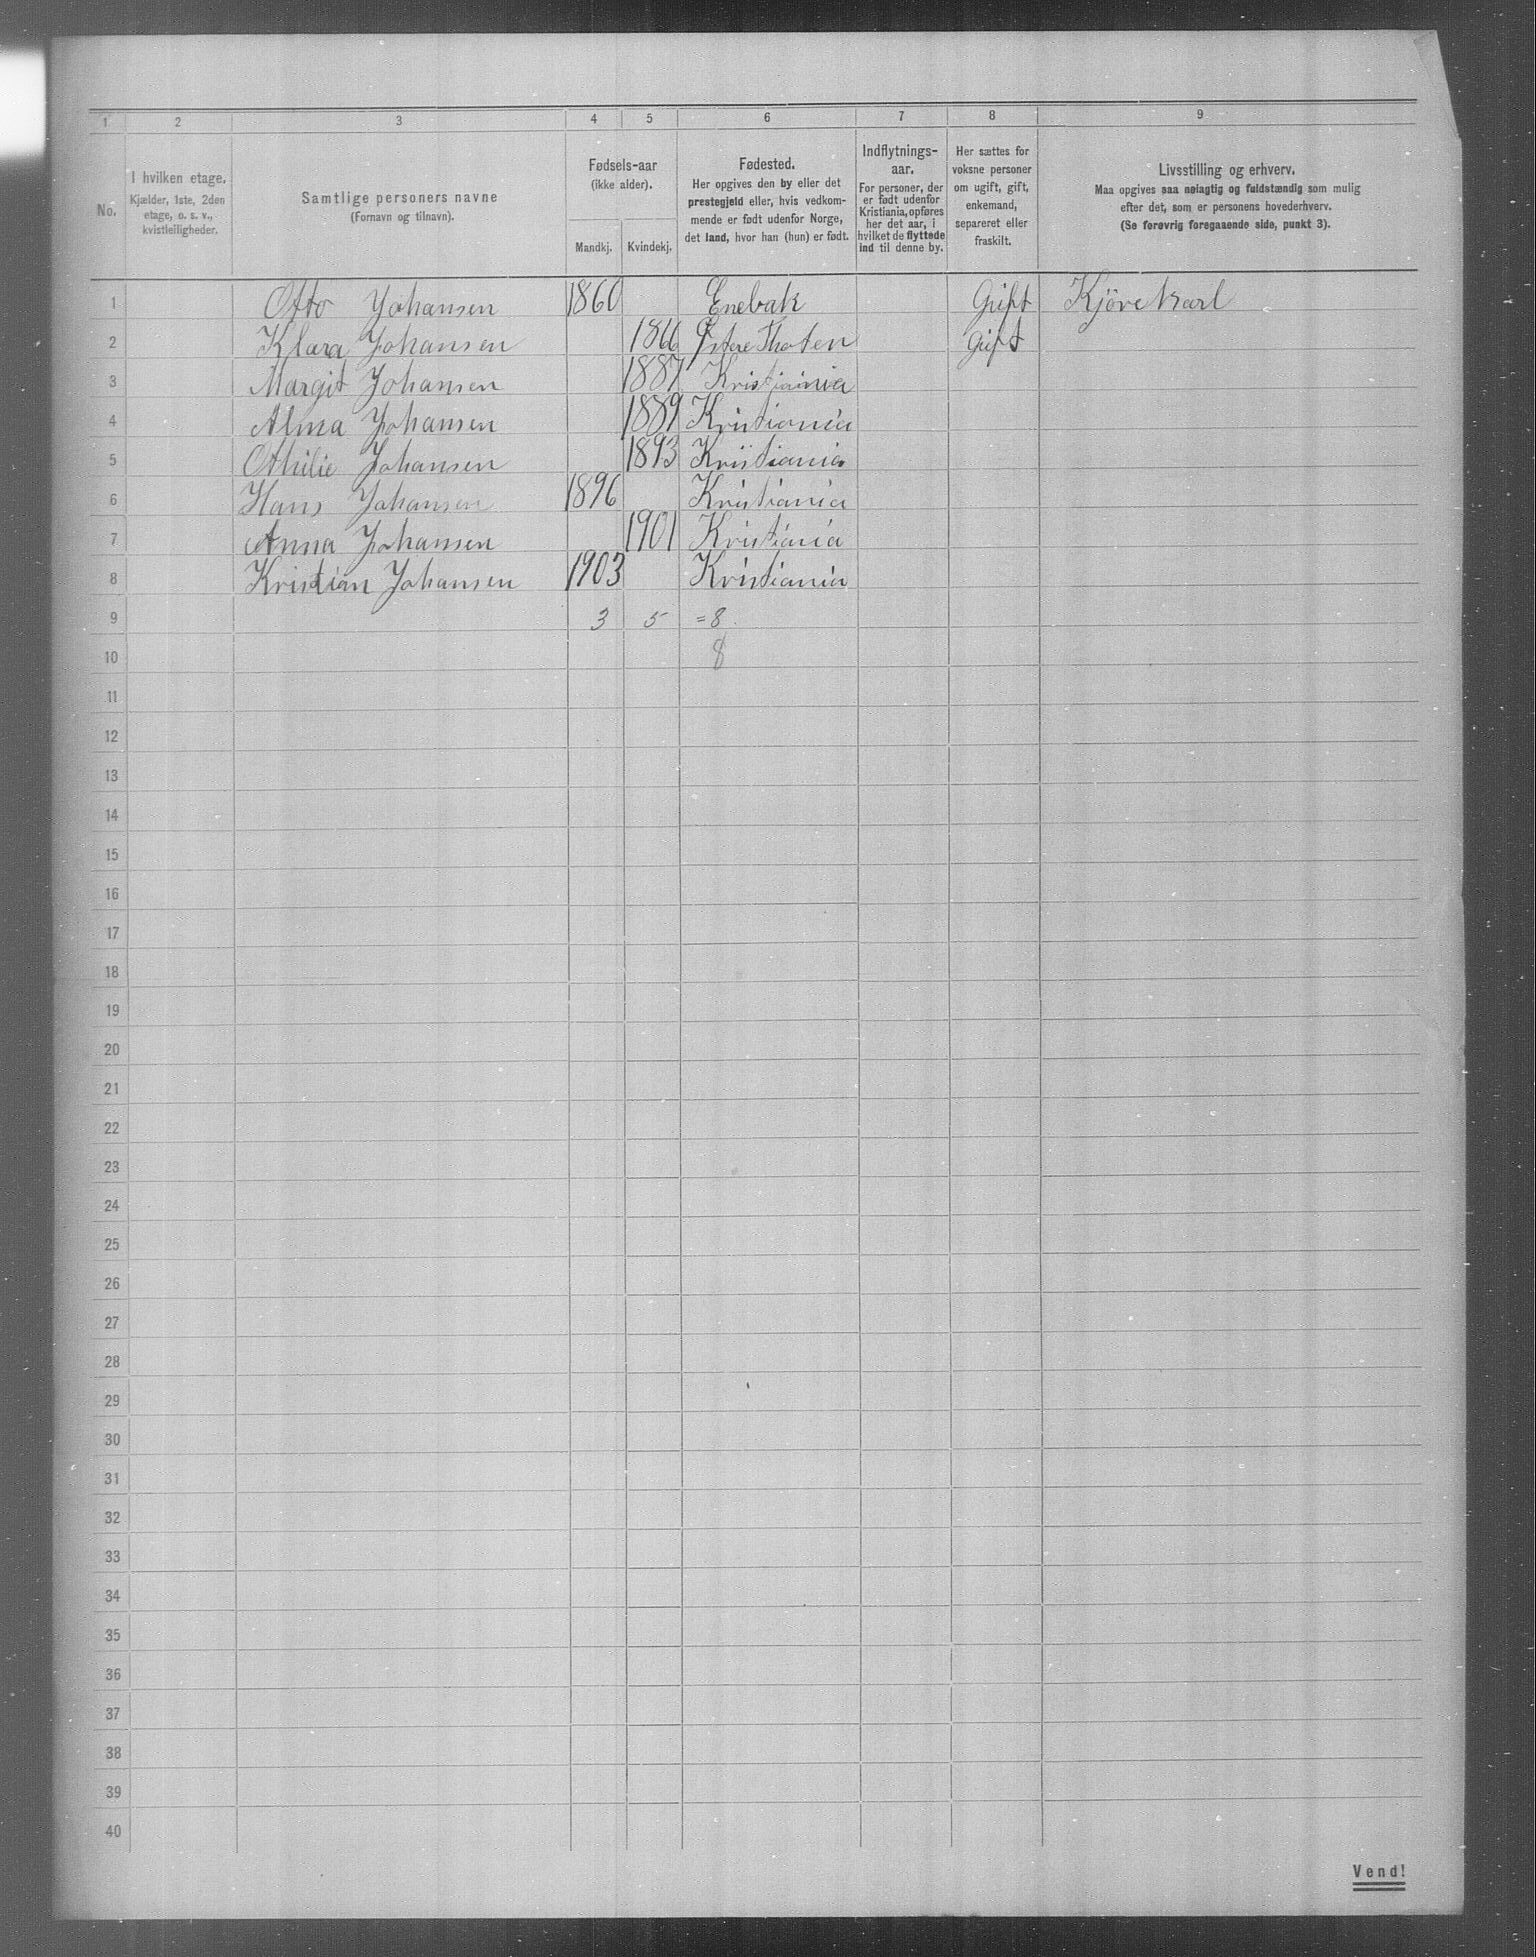 1 2 3 4 5 6 7 8 9
No.
I hvilken etage.
Kjælder, 1ste, 2den
etage, o. s. v.,
kvistleiligheder.
Samtlige personers navne
(Fornavn og tilnavn).
Fødsels-aar
(ikke alder).
Mandkj. Kvindekj.
Fødested.
Her opgives den by eller det
prestegjeld eller, hvis vedkom-
mende er født udenfor Norge,
det land, hvor han (hun) er født.
Indflytnings-
aar.
For personer, der
er født udenfor
Kristiania, opføres
her det aar, i
hvilket de flyttede
ind til denne by.
Her sættes for
voksne personer
om ugift, gift,
enkemand,
separeret eller
fraskilt.
Livsstilling og erhverv.
Maa opgives saa nøiagtig og fuldstændig som mulig
efter det, som er personens hovederhverv.
(Se forøvrig foregaaende side, punkt 3).
1 Otto Johansen 1860 Enebak Gift Kjørekarl
2 Klara Johansen 1866 Østere Thoten Gift
3 Margit Johansen 1887 Kristiania
4 Alma Johansen 1889 Kristiania
5 Othilie Johansen 1893 Kristiania
6 Hans Johansen 1896 Kristiania
7 Anna Johansen 1901 Kristiania
8 Kristian Johansen 1903 Kristiania
9 3 5 =8.
10 8
11
12
13
14
15
16
17
18
19
20
21
22
23
24
25
26
27
28
29
30
31
32
33
34
35
36
37
38
39
40
Vend!